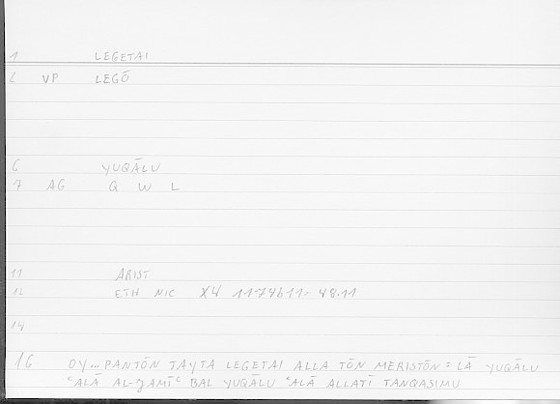 1 LEGETAI
2 VP LEGŌ
6 YUQĀLU
7 AG Q W L
11 ARIST
12 ETH NIC X4 1174b11-
14
16 OY... PANTŌN TAYTA LEGETAI ALLA TŌN MERISTŌN = LĀ YUQĀLU
ʿALĀ AL-ǦAMĪʿ BAL YUQĀLU ʿALĀ ALLATĪ TANQASIMU